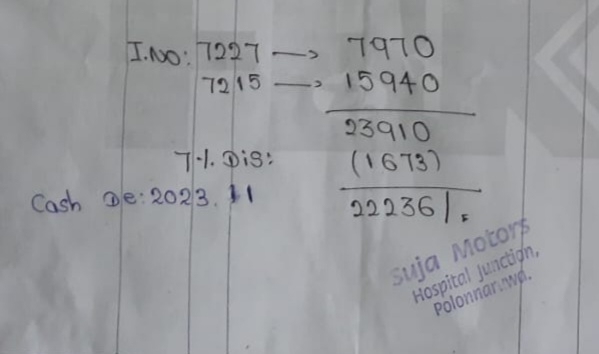 I.NO: 7227 → 7970
7215 → 15940
23910
7% Dis: (1673)
Cash De: 2023.11 22236/.
Suja Motors
Hospital Junction,
Polonnaruwa.